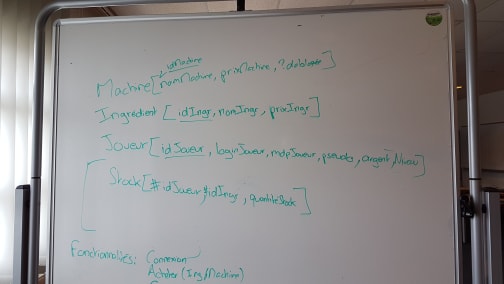 idMachine
Machine[nomMachine, prixMachine, ?
Ingrédient [idIngr, nomIngr, prixIngr]
Joueur[idJoueur, loginJoueur, mdpJoueur, pseudo, argent, Niveau]
Stock[#idJoueur, #idIngr, quantiteStock]
Fonctionnalités: Connexion
Acheter (Ing/Machine)